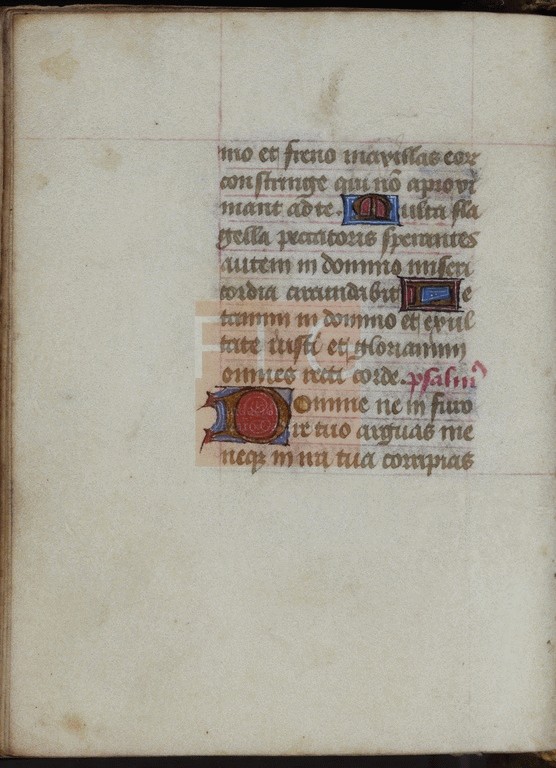 mo et freno maxillas eorꝝ
constringe qui nō aproxi
mant ad te. Multa fla
gella peccatoris sperantes
autem in domino miseri
cordia circundabit Le
tamini in domino et exul
tate iusti et gloriamini
omnes recti corde. psalm꣒
Domine ne in furo
re tuo arguas me
neqꝫ in ira tua corripias